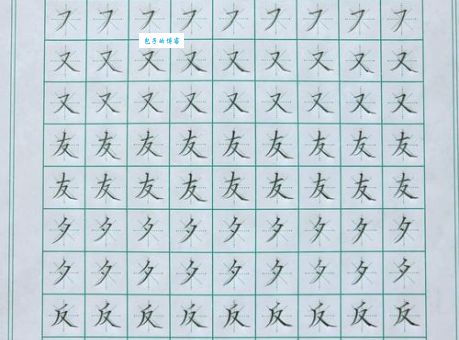 ㇇㇇㇇㇇㇇㇇㇇㇇㇇
包子的博客
又又又又又又又又又
又又又又又又又又又
友友友友友友友友友
友友友友友友友友友
夕夕夕夕夕夕夕夕夕
夕夕夕夕夕夕夕夕夕
反反反反反反反反反